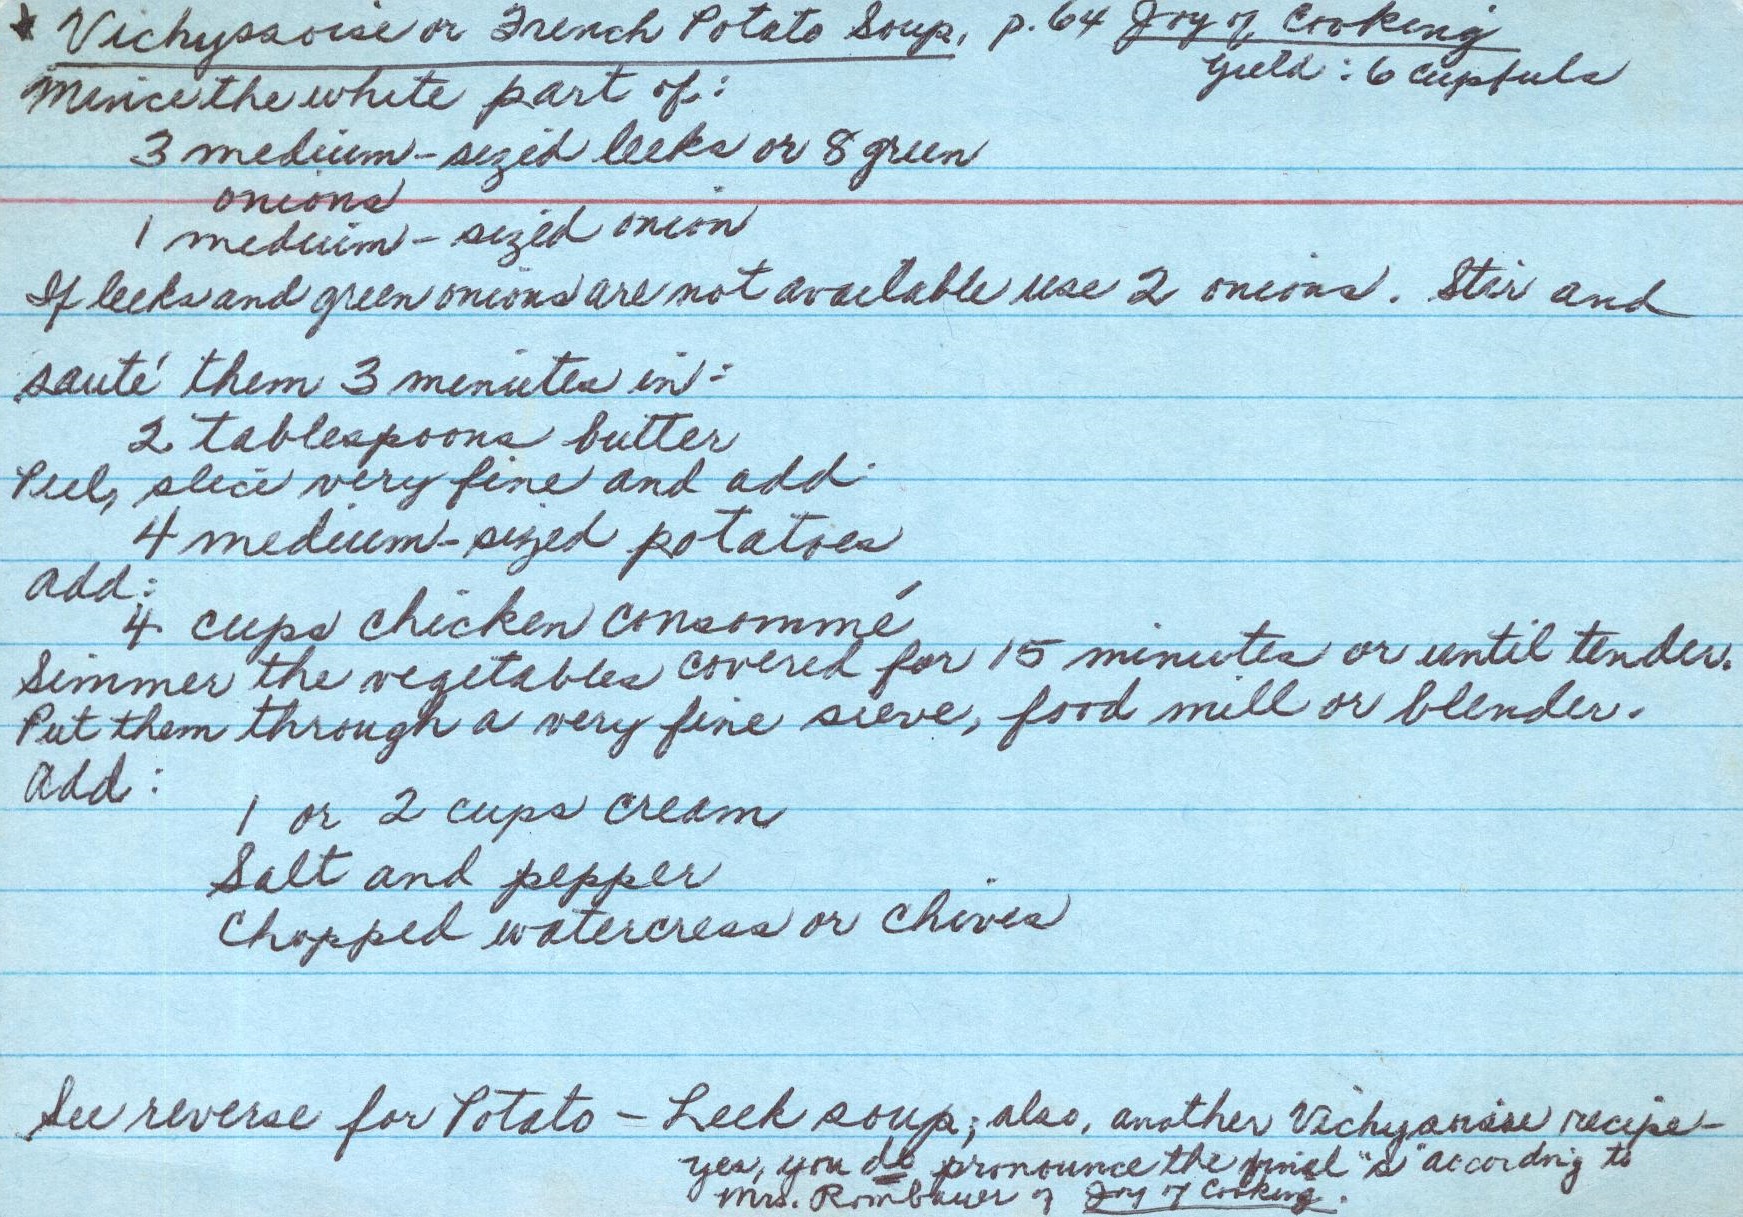 * Vichyssoise or French Potato Soup, p. 64 Joy of Cooking
Yield: 6 cupfuls
Mince the white part of:
3 medium-sized leeks or 8 green
onions
1 medium-sized onion
If leeks and green onions are not available use 2 onions. Stir and
sauté them 3 minutes in:
2 tablespoons butter
Peel, slice very fine and add:
4 medium-sized potatoes
Add:
4 cups chicken consommé
Simmer the vegetables covered for 15 minutes or until tender.
Put them through a very fine sieve, food mill or blender.
Add:
1 or 2 cups cream
Salt and pepper
Chopped watercress or chives
See reverse for Potato - Leek soup; also, another Vichysoisse recipe -
yes, you do pronounce the final "s" according to
Mrs. Rombauer of Joy of Cooking.